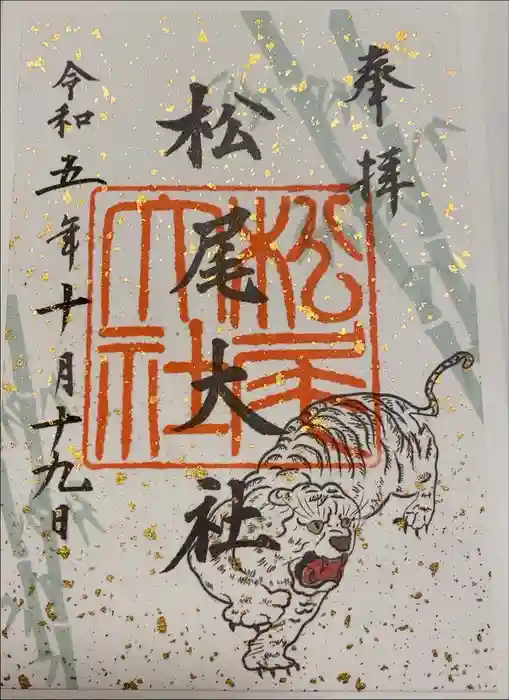 奉拝
松尾大社
松尾大社
令和五年十月十九日